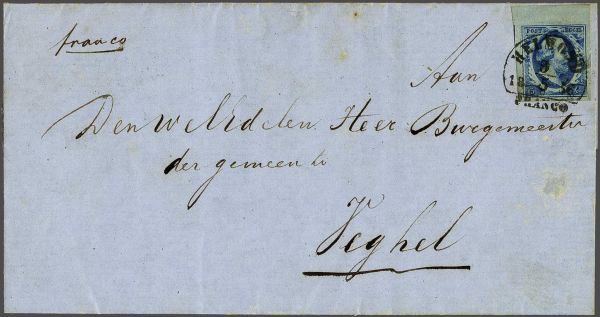 franco
POSTZEGEL
HELMOND
FRANCO
Aan
Den WelEdelen Heer Burgemeester
der gemeente
Veghel